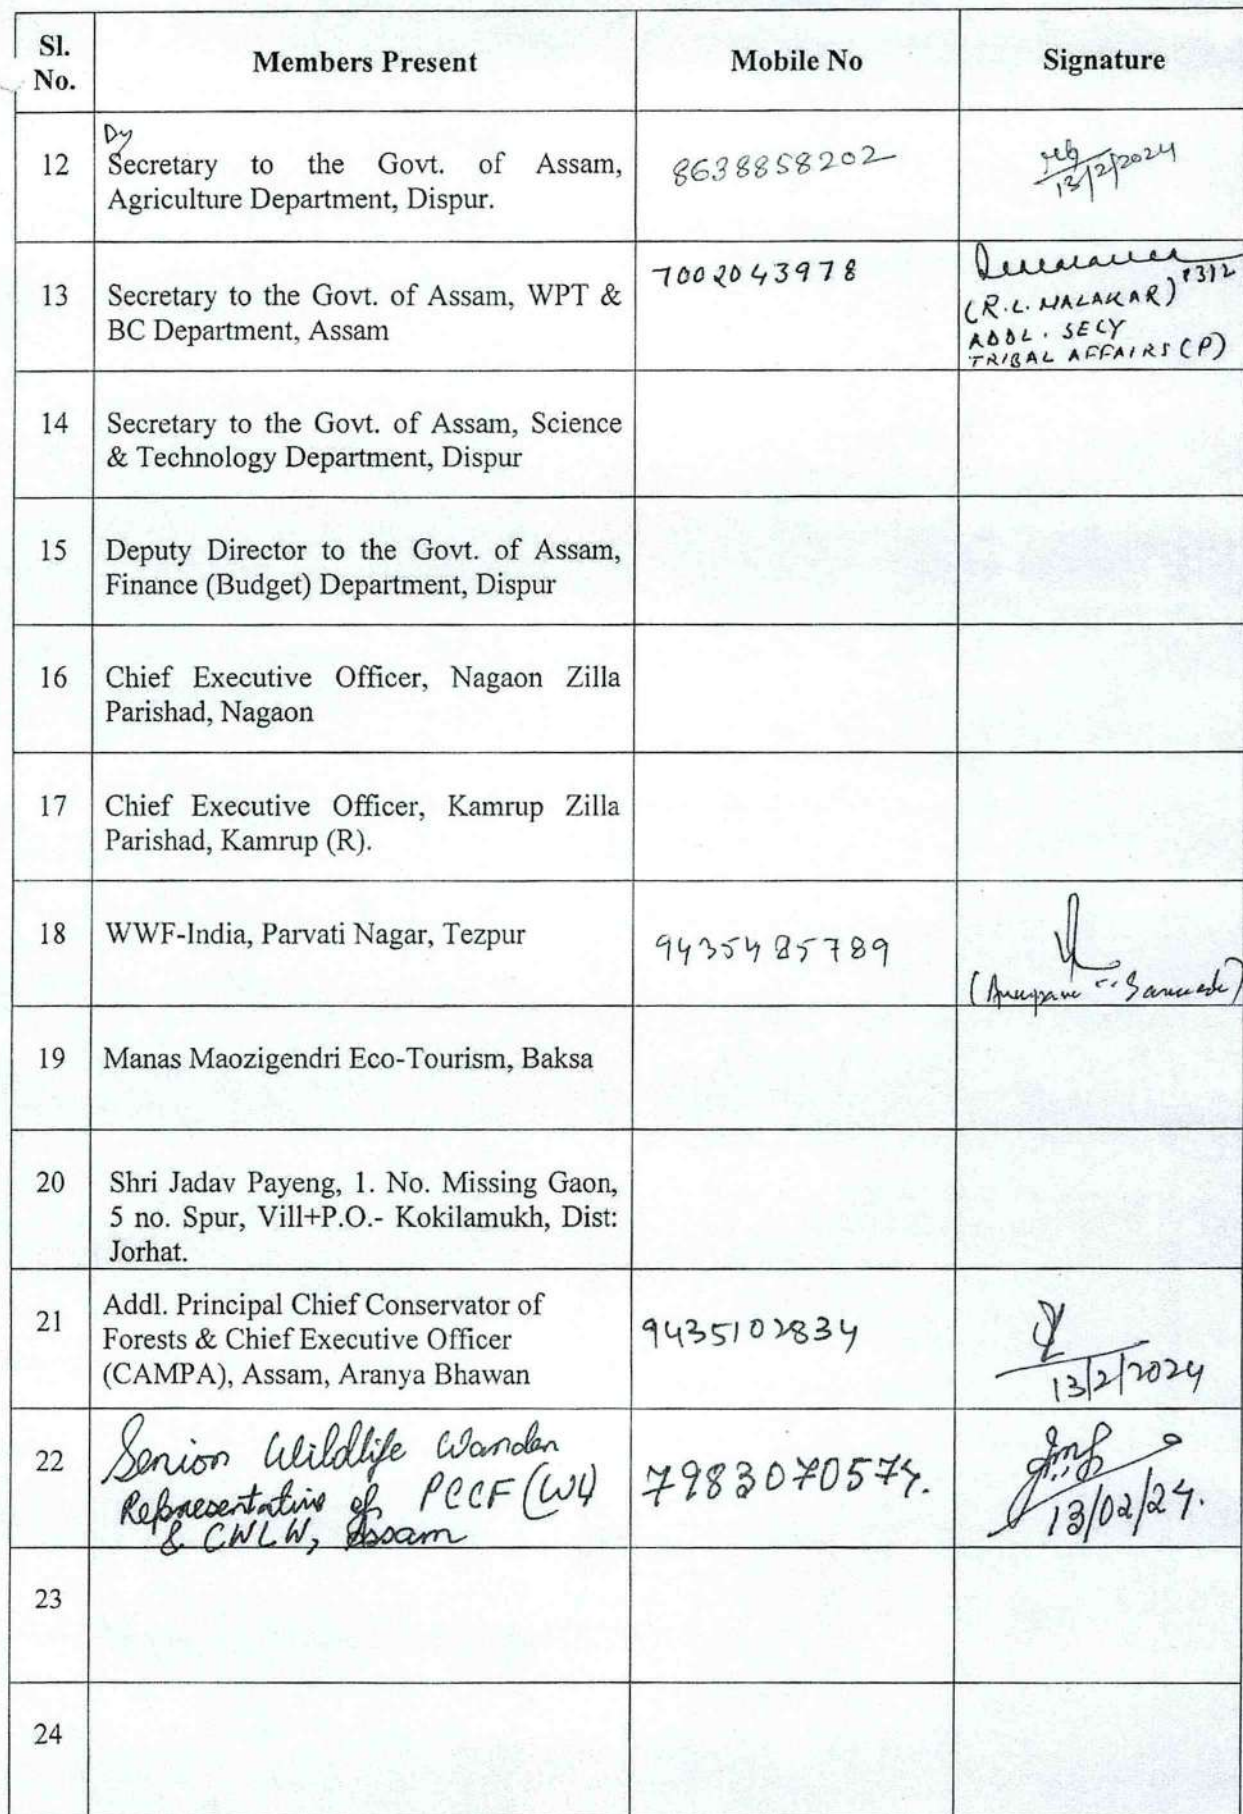 Sl. No.
Members Present
Mobile No
Signature
12
Dy
Secretary to the Govt. of Assam,
Agriculture Department, Dispur.
8638858202
13/2/2024
13
Secretary to the Govt. of Assam, WPT &
BC Department, Assam
7002043978
13/2
(R.L. MALAKAR)
ADDL. SECY
TRIBAL AFFAIRS (P)
14
Secretary to the Govt. of Assam, Science
& Technology Department, Dispur
15
Deputy Director to the Govt. of Assam,
Finance (Budget) Department, Dispur
16
Chief Executive Officer, Nagaon Zilla
Parishad, Nagaon
17
Chief Executive Officer, Kamrup Zilla
Parishad, Kamrup (R).
18
WWF-India, Parvati Nagar, Tezpur
9435485789
19
Manas Maozigendri Eco-Tourism, Baksa
20
Shri Jadav Payeng, 1. No. Missing Gaon,
5 no. Spur, Vill+P.O.- Kokilamukh, Dist:
Jorhat.
21
Addl. Principal Chief Conservator of
Forests & Chief Executive Officer
(CAMPA), Assam, Aranya Bhawan
9435102834
13/2/2024
22
Senior Wildlife Warden
Representative of PCCF (WL)
& CWLW, Assam
7983070574.
13/02/24.
23
24